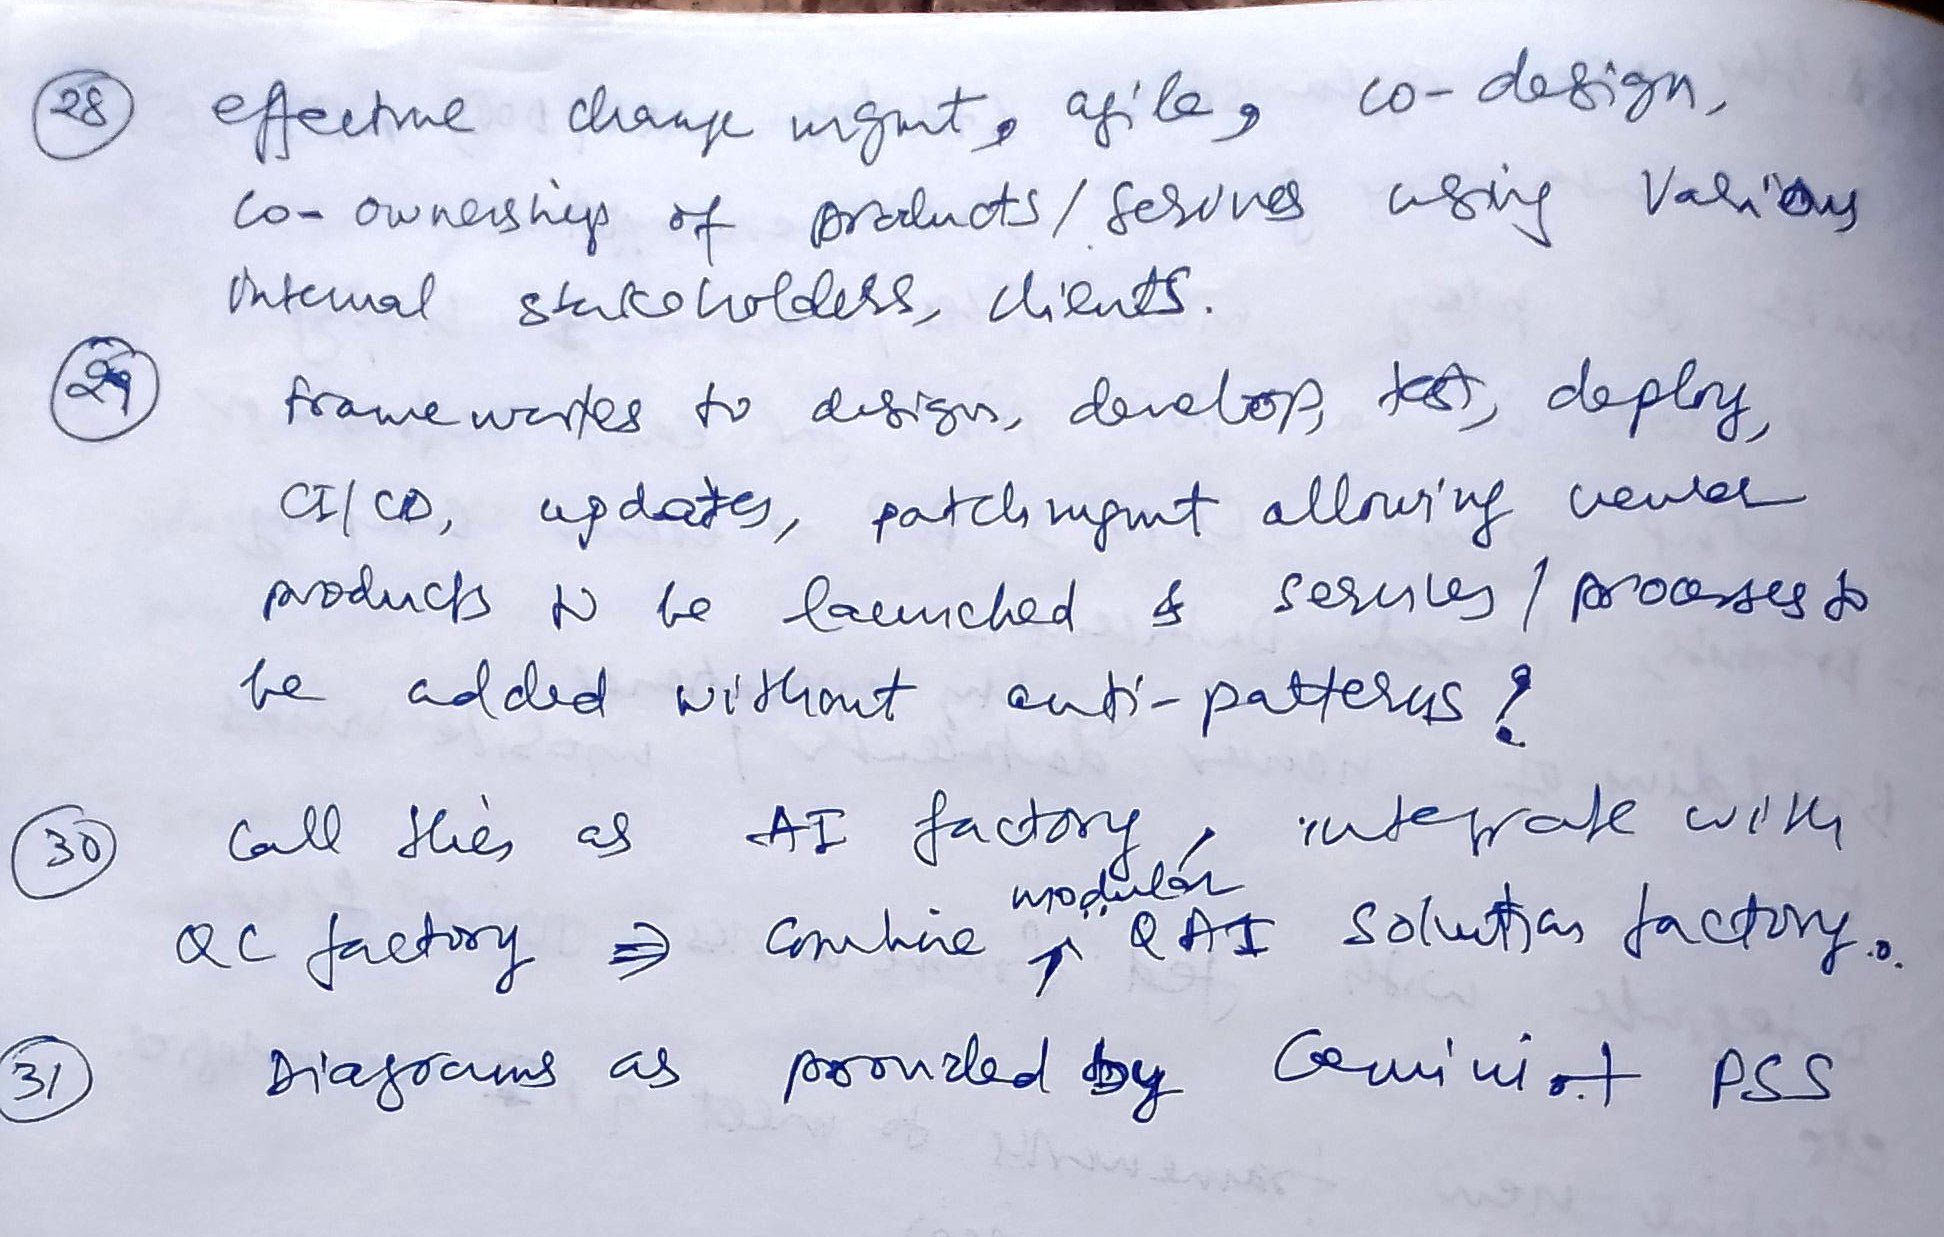 28 effective change mgmt, agile, co-design,
co-ownership of products/services using various
internal stakeholders, clients.
29 frameworks to design, develop, test, deploy,
CI/CD, updates, patch mgmt allowing newer
products to be launched & services/processes to
be added without anti-patterns?
30 Call this as AI factory, integrate with
QC factory ⇒ combine modular QAI solution factory.
31 Diagrams as provided by Gemini + PSS